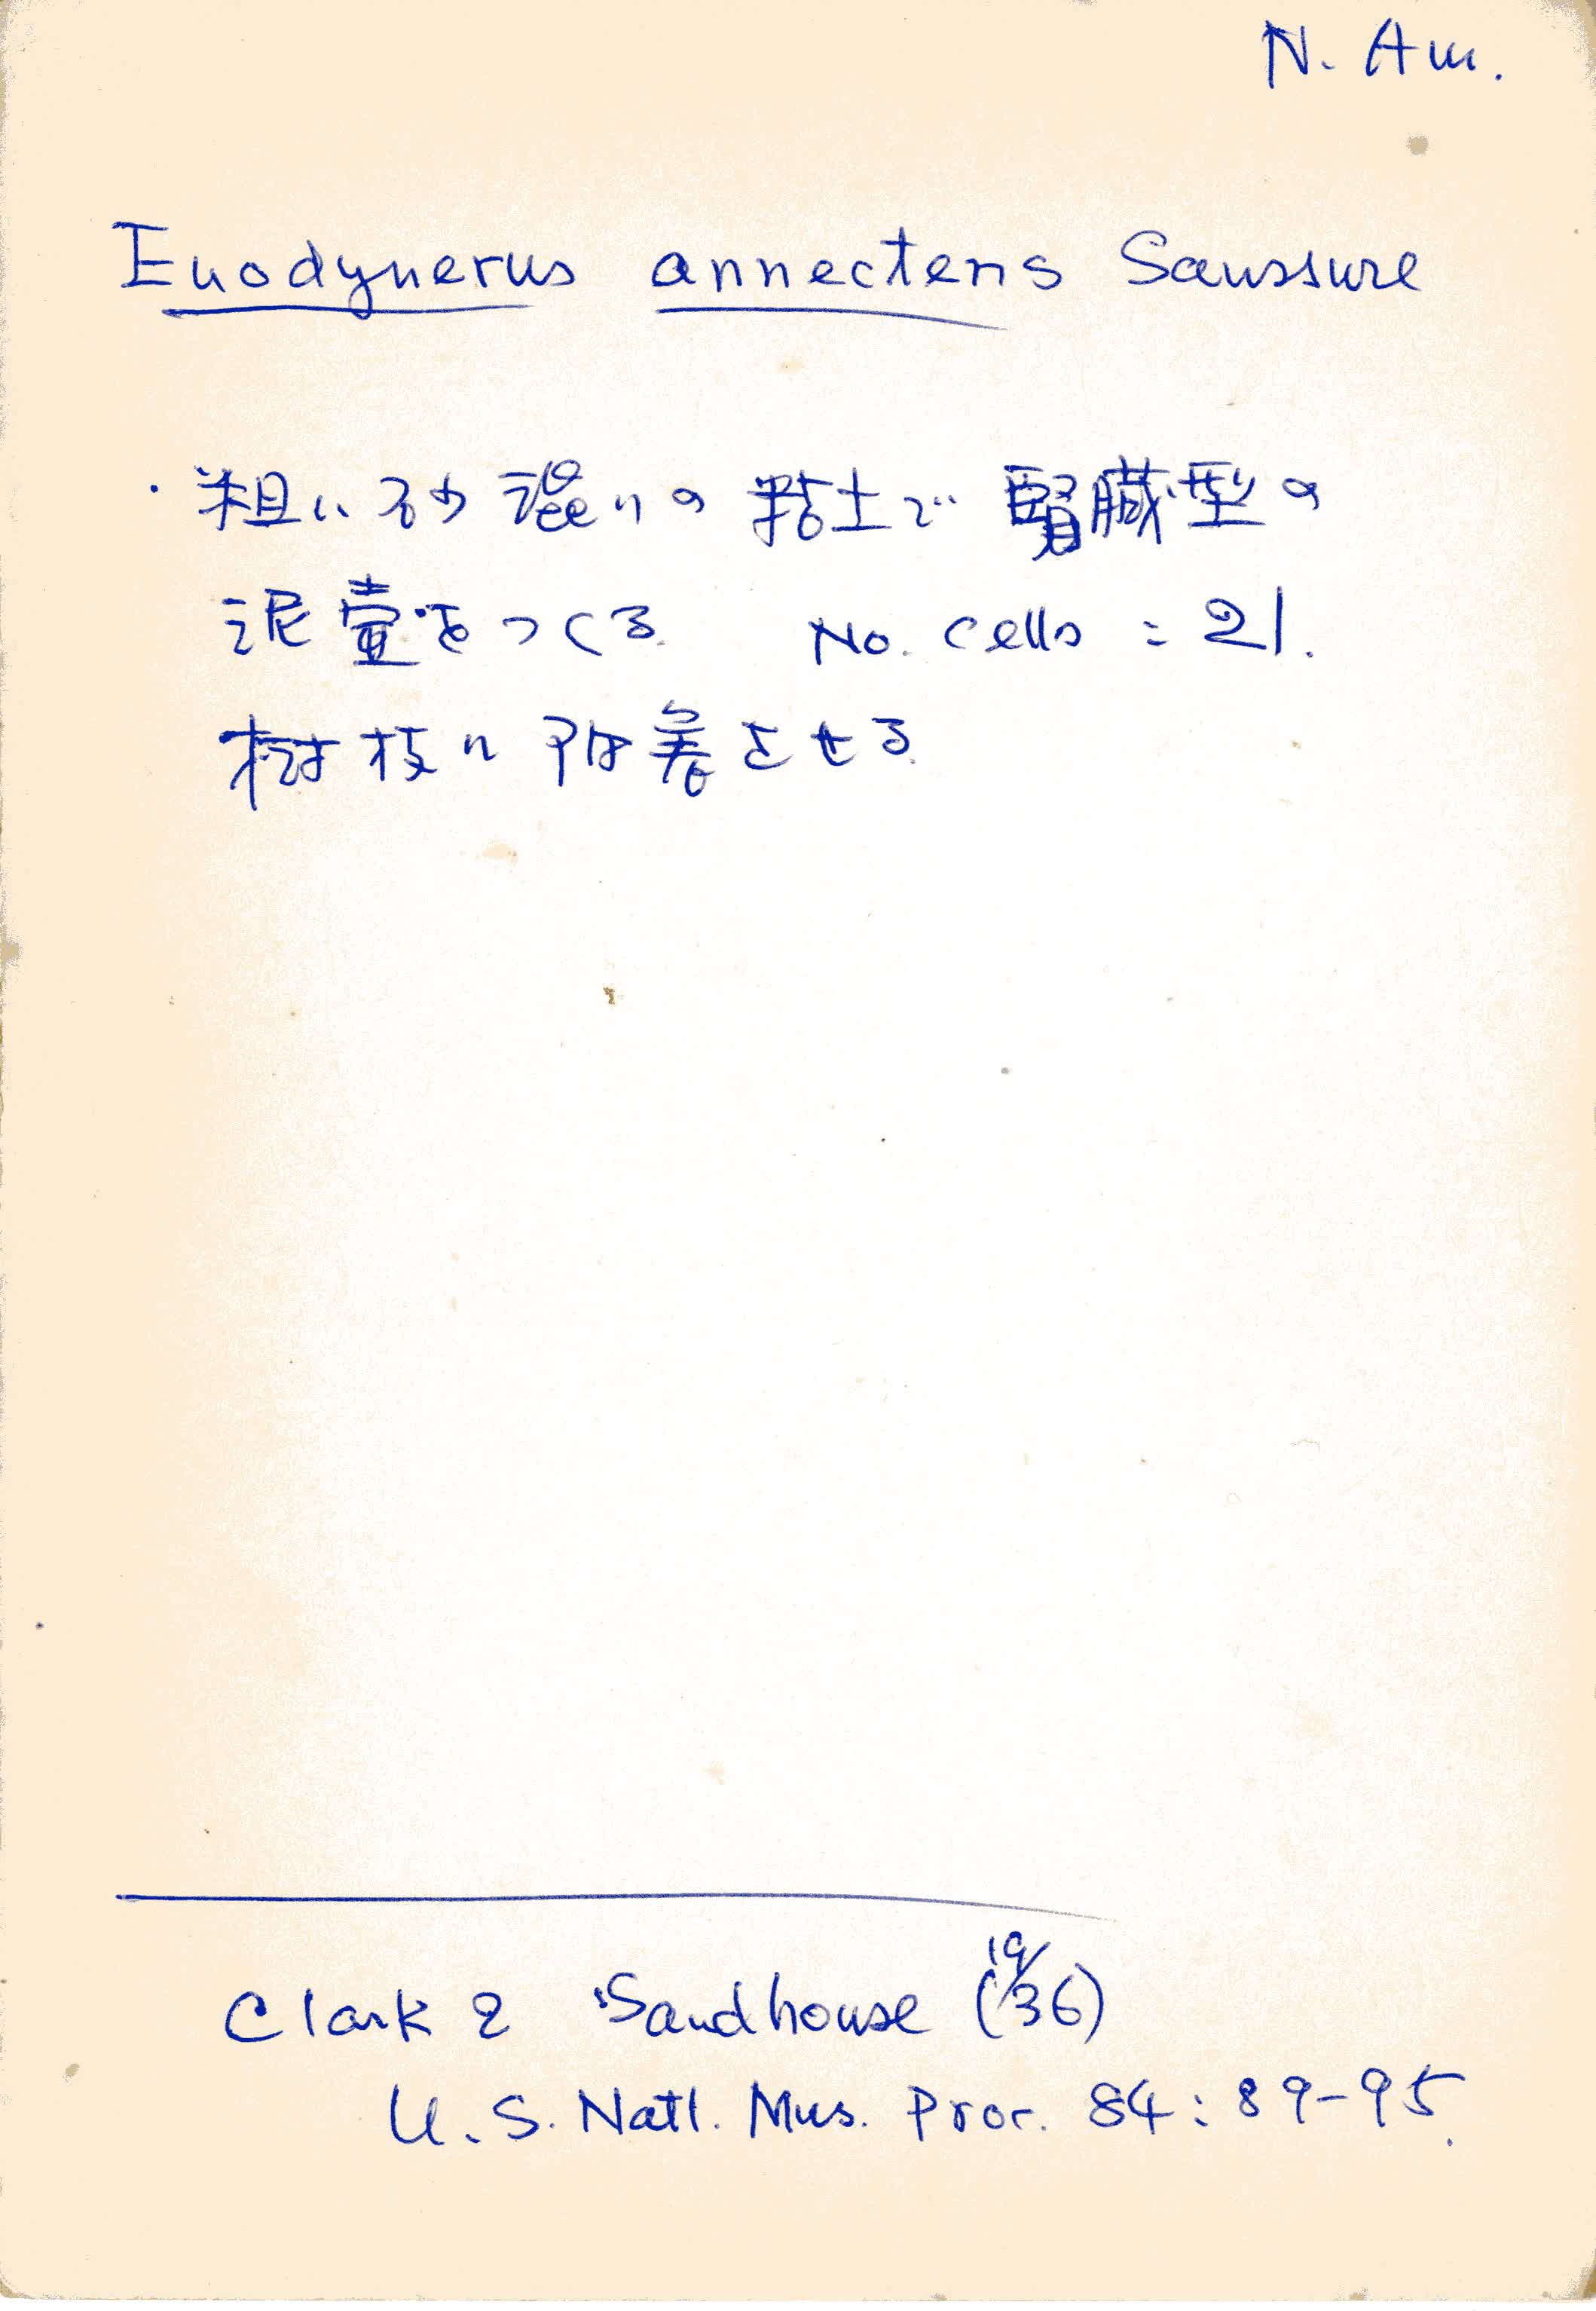 N. Am.
Euodynerus annectens Saussure
・粗い砂混りの粘土で腎臓型の
泥壺をつくる. No. cells : 21.
樹枝に附着させる.
Clark & Sandhouse (1936)
U.S. Natl. Mus. Proc. 84 : 89-95.